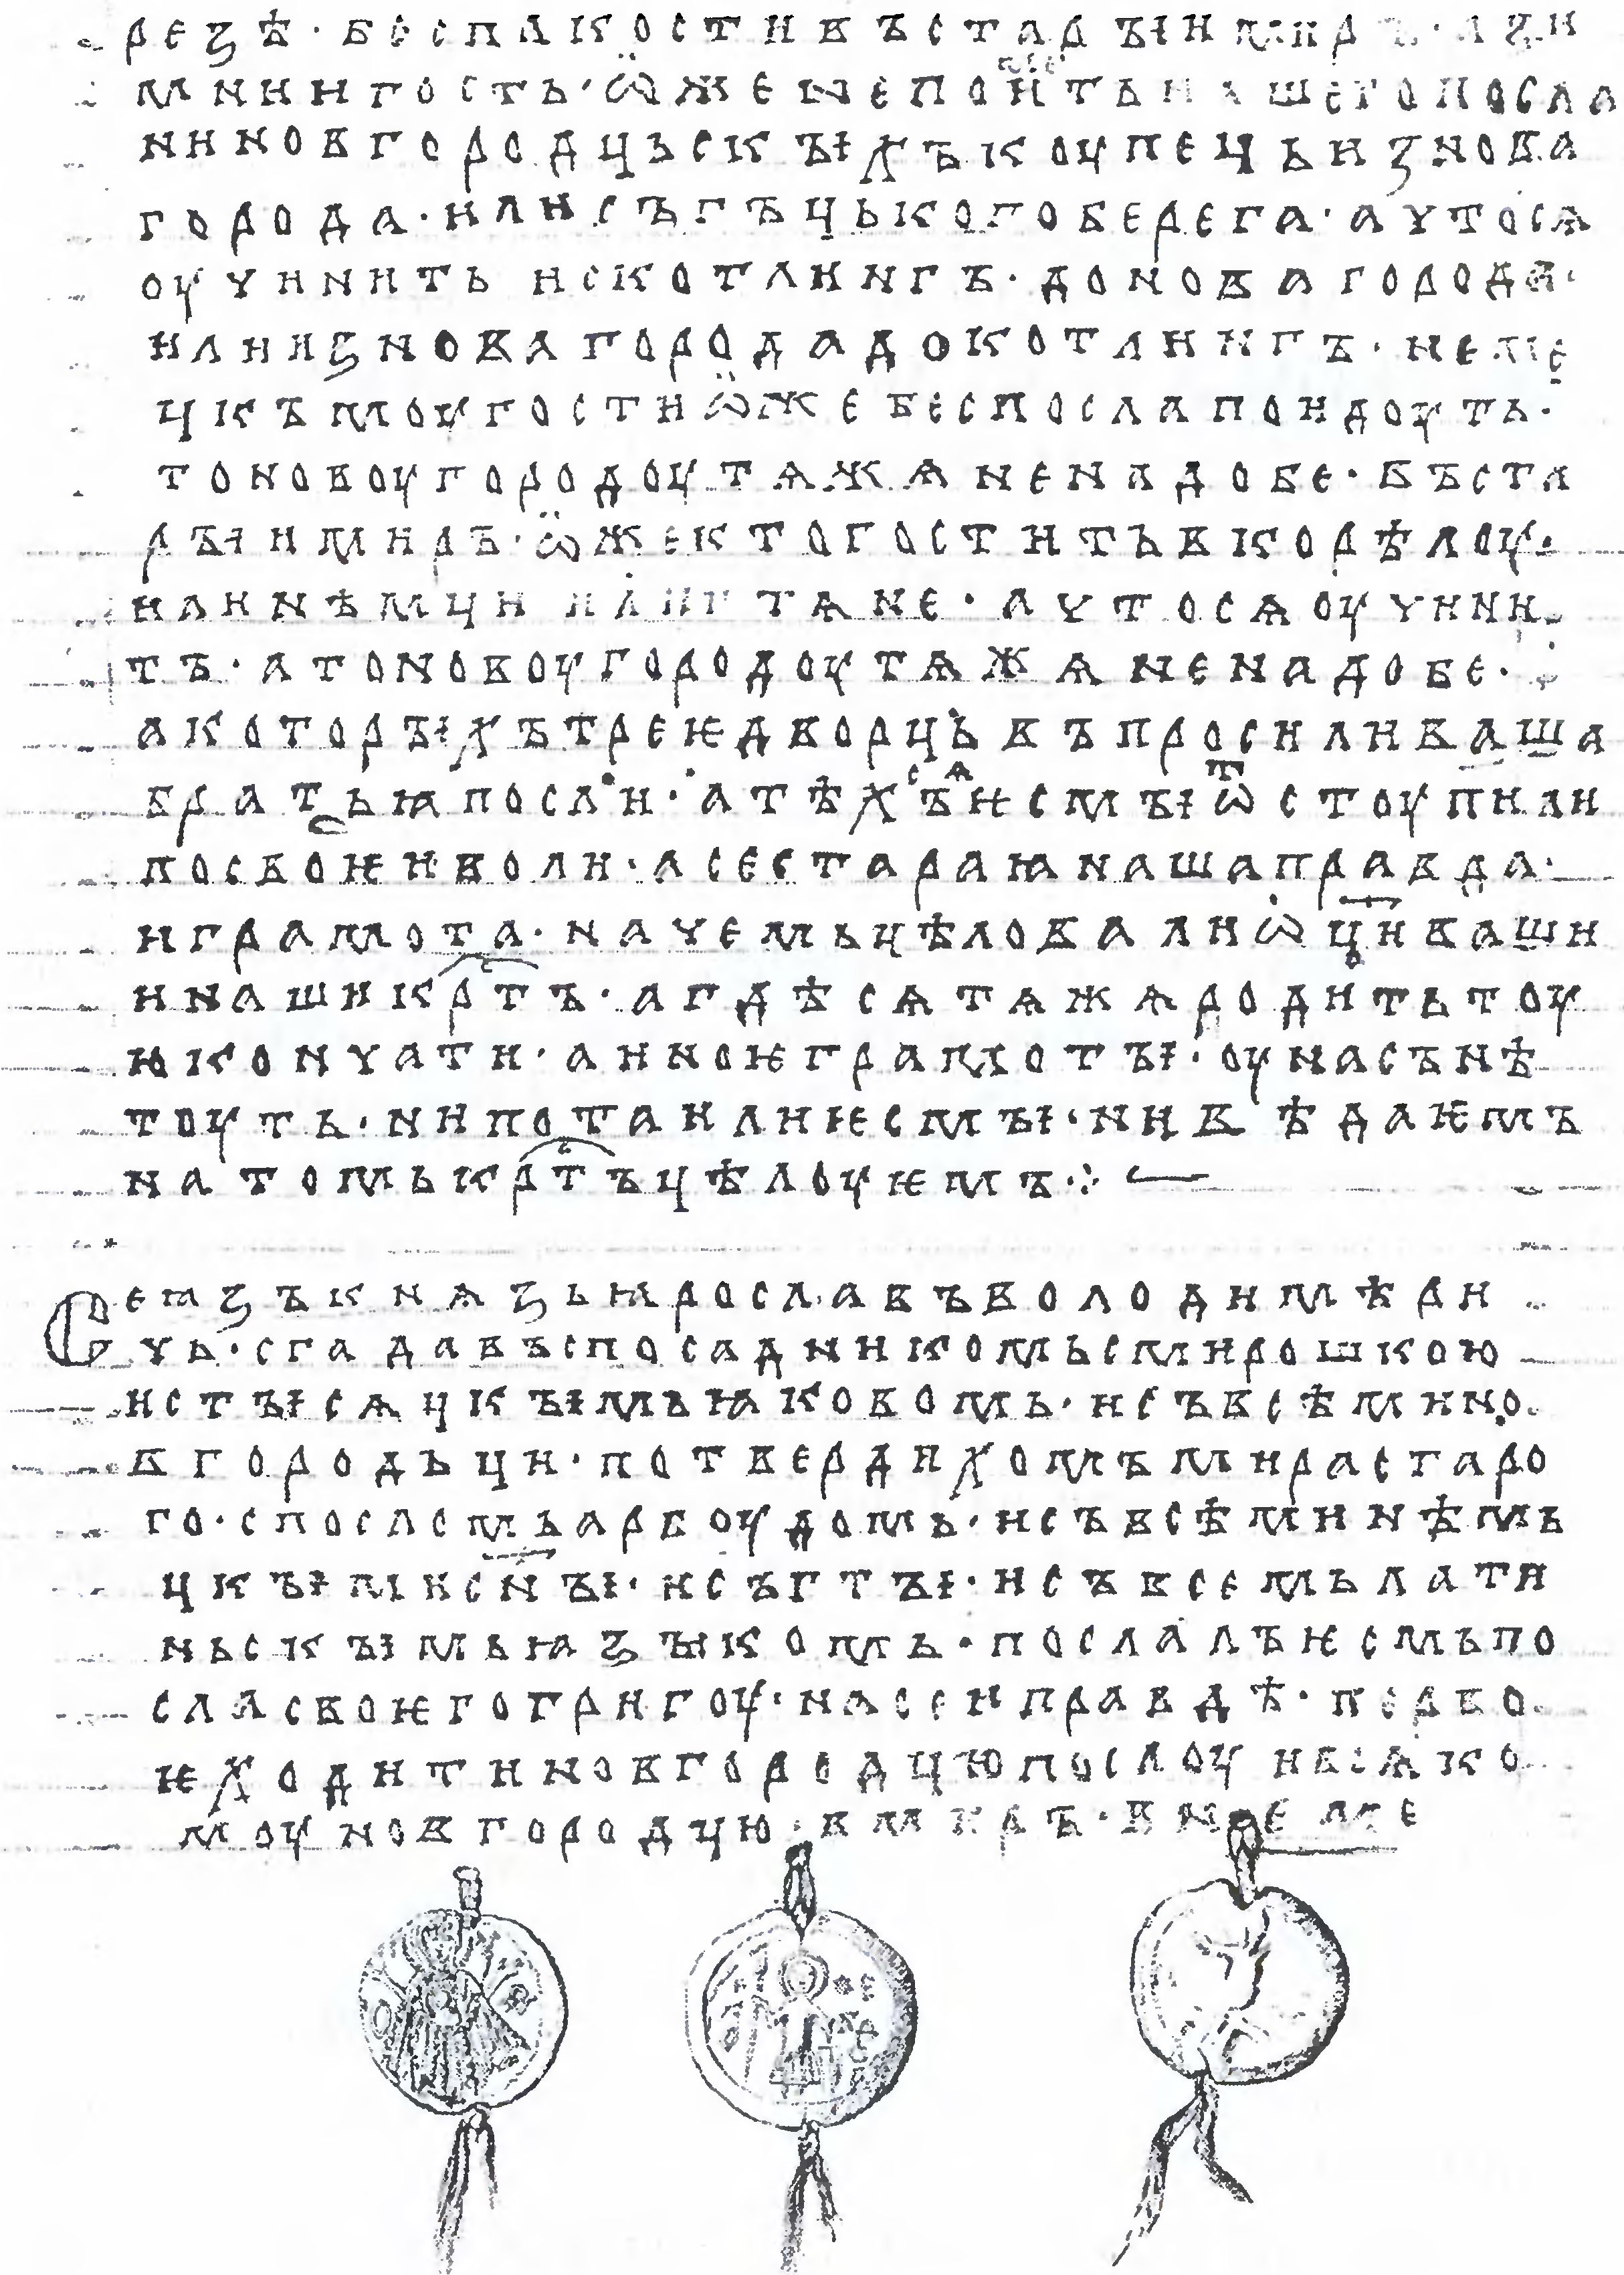 резѣ · бес пакости въ старъıи миръ · а зи
мнии гость · ѡже не поиметь нашего посла
ни новгородцьскъıхъ коупець из нова
города · или съ гъцького берега · а что сѧ
оучинить ис котлингъ · до нова города ·
или из нова города до котлингъ · неме
цкъмоу гости ѡже бес посла поидоуть ·
то новоугородоу тѧжѧ не надобе · въ ста
ръıи миръ · ѡже кто гостить в корѣлоу ·
или нѣмци или гтѧне · а что сѧ оучини
ть · а то новоугородоу тѧжѧ не надобе ·
а которъıхъ трее дворць въпросили ваша
братьꙗ посли · а тѣхъ сѧ ѥсмъı ѿстоупили
по своѥи воли · а се старая наша правда ·
и грамота · на чемь цѣловали ѡци ваши
и наши крⷭтъ · а гдѣ сѧ тѧжѧ родить тоу
ю кончати · а иноѥ грамотъı · оу насъ нѣ
тоуть · ни потаили ѥсмъı · ни вѣдаѥмъ
на томь крⷭтъ цѣлоуѥмъ ·:·

Се ꙗзъ кнѧзь ꙗрославъ володимѣри
чь · сгадавъ с посадникомь с мирошкою
и с тъıсѧцкъıмь ꙗковомь · и съ всѣми но
вгородьци · потвердихомъ мира старо
го · с посломь арбоудомь · и съ всѣми нѣмь
цкъıми снъı · и съ гтъı · и съ всемь латн
ньскъıмь ꙗзъıкомь · послалъ ѥсмь по
сла своѥго григоу · на сеи правдѣ · перво
ѥ ходити новгородцю послоу и всѧко
моу новгородцю · в миръ · в нѣме